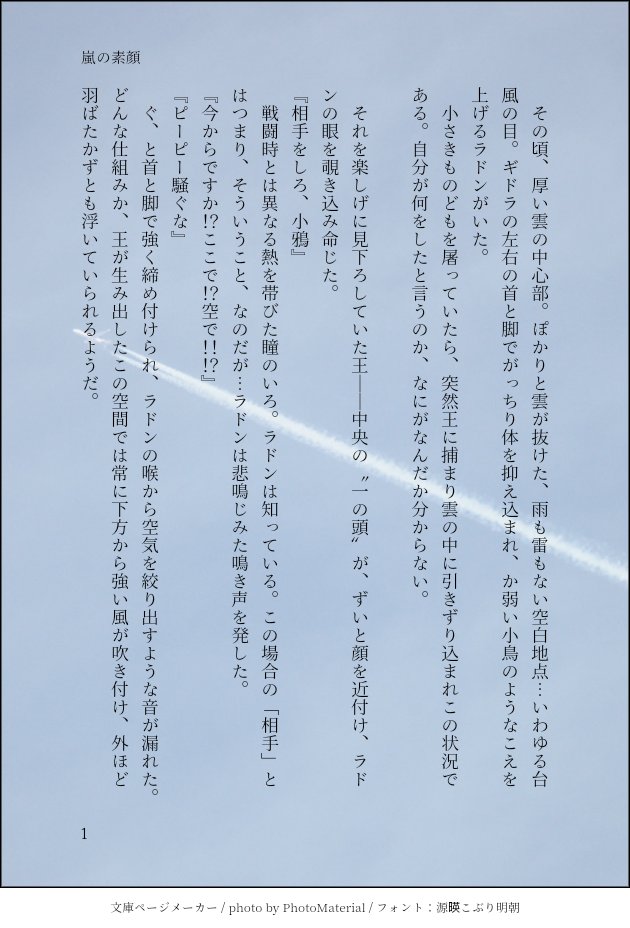 嵐の素顔
その頃、厚い雲の中心部。ぽかりと雲が抜けた、雨も雷もない空白地点…いわゆる台
風の目。ギドラの左右の首と脚でがっちり体を抑え込まれ、か弱い小鳥のようなこえを
上げるラドンがいた。
小さきものどもを屠っていたら、突然王に捕まり雲の中に引きずり込まれこの状況で
ある。自分が何をしたと言うのか、なにがなんだか分からない。
それを楽しげに見下ろしていた王――中央の〝一の頭〟が、ずいと顔を近付け、ラド
ンの眼を覗き込み命じた。
『相手をしろ、小鴉』
戦闘時とは異なる熱を帯びた瞳のいろ。ラドンは知っている。この場合の「相手」と
はつまり、そういうこと、なのだが…ラドンは悲鳴じみた鳴き声を発した。
『今からですか!?ここで!?空で!!!?』
『ピーピー騒ぐな』
ぐ、と首と脚で強く締め付けられ、ラドンの喉から空気を絞り出すような音が漏れた。
どんな仕組みか、王が生み出したこの空間では常に下方から強い風が吹き付け、外ほど
羽ばたかずとも浮いていられるようだ。
1
文庫ページメーカー / photo by PhotoMaterial / フォント：源暎こぶり明朝